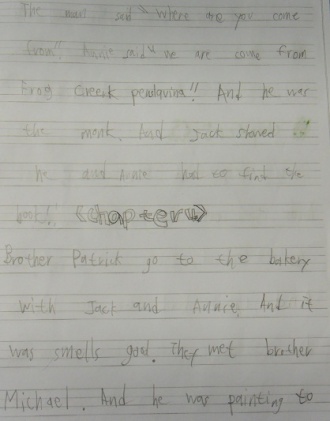 The man said "where are you come
from". Annie said "we are come from
Frog Creek pendavina!! And he was
the monk. And Jack
he and Annie had to find the
book!" (chapter 4)
Brother Patrick go to the bakery
with Jack and Annie. And it
was smells good. They met brother
Michael. And he was painting to